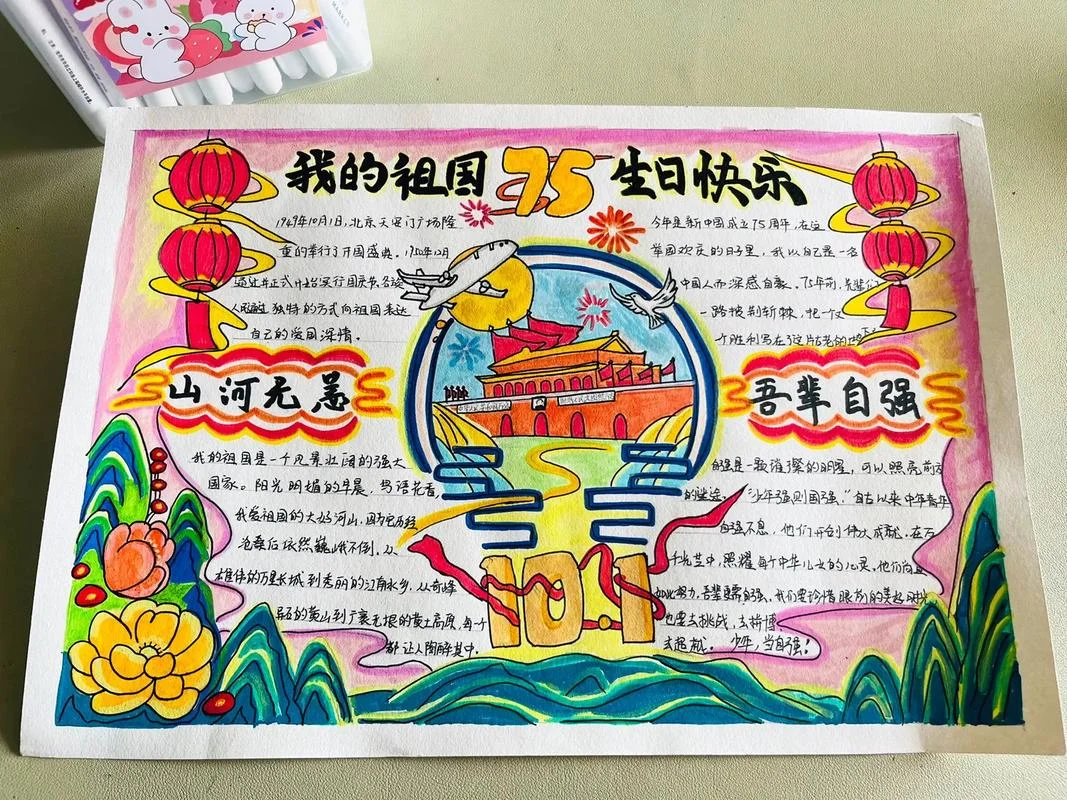 我的祖国75生日快乐
1949年10月1日,北京天安门广场隆
重的举行了开国盛典。1950年12月
通过并正式开始实行国庆节各族
人民 独特的方式向祖国表达
自己的爱国深情。
今年是新中国成立75周年,在这
举国欢庆的日子里,我以自己是一名
中国人而深感自豪。75年前,先辈们
一路披荆斩棘,把一个
个胜利写在了这片古老的
山河无恙
吾辈自强
我的祖国是一个风景壮阔的强大
国家。阳光明媚的早晨,鸟语花香,
我爱祖国的大好河山,因为它历经
沧桑后依然巍峨不倒,从
雄伟的万里长城到秀丽的江南水乡,从奇峰
异石的黄山到广袤无垠的黄土高原,每一个
都让人陶醉其中。
自强是一颗璀璨的明星,可以照亮前方
的迷途。"少年强则国强。"自古以来中华青年
自强不息,他们开创伟大成就。在万
千光芒中,照耀每个中华儿女的心灵,他们向且
如此努力,吾辈更需自强。我们要珍惜眼前的美好
也要去挑战,去拼搏
去超越。少年,当自强!
101